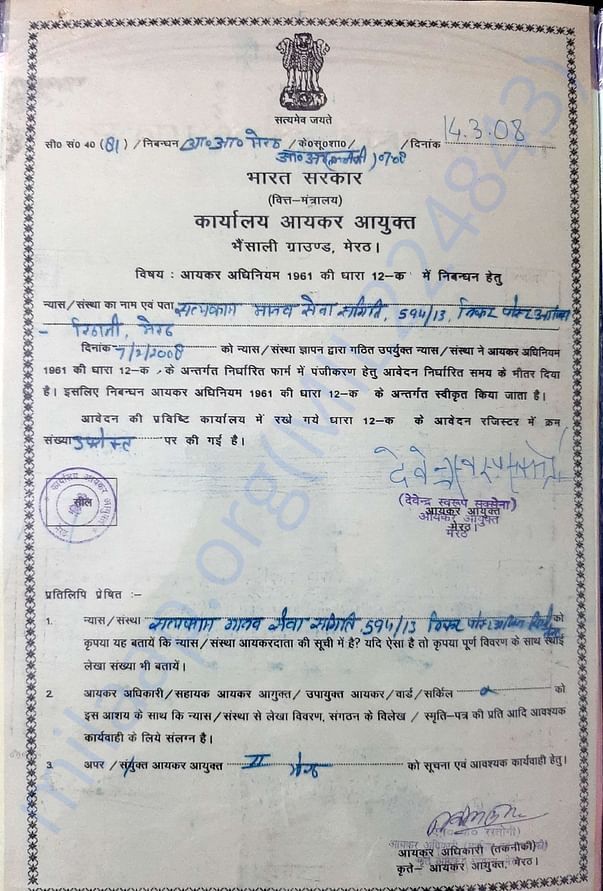 सत्यमेव जयते
सी० सं० 40 (81) / निबन्धन आ०आ० मेरठ /के०सू०शा०/ /दिनांक 14.3.08
07-08
भारत सरकार
(वित्त-मंत्रालय)
कार्यालय आयकर आयुक्त
भैंसाली ग्राउण्ड, मेरठ।
विषय : आयकर अधिनियम 1961 की धारा 12-क में निबन्धन हेतु
न्यास/संस्था का नाम एवं पता सत्यकाम मानव सेवा समिति, 594/13, निकट पोस्ट ऑफिस
- रिठानी, मेरठ
दिनांक 7/2/2008 को न्यास/संस्था ज्ञापन द्वारा गठित उपर्युक्त न्यास/संस्था ने आयकर अधिनियम
1961 की धारा 12-क के अन्तर्गत निर्धारित फार्म में पंजीकरण हेतु आवेदन निर्धारित समय के भीतर दिया
है। इसलिए निबन्धन आयकर अधिनियम 1961 की धारा 12-क के अन्तर्गत स्वीकृत किया जाता है।
आवेदन की प्रविष्टि कार्यालय में रखे गये धारा 12-क के आवेदन रजिस्टर में क्रम
संख्या उपरोक्त पर की गई है।
सील
(देवेन्द्र स्वरूप सक्सेना)
आयकर आयुक्त
आयकर आयुक्त
मेरठ।
मेरठ
प्रतिलिपि प्रेषित :-
1. न्यास/संस्था सत्यकाम मानव सेवा समिति 594/13 निकट पोस्ट ऑफिस को
कृपया यह बतायें कि न्यास/संस्था आयकरदाता की सूची में है? यदि ऐसा है तो कृपया पूर्ण विवरण के साथ स्थाई
लेखा संख्या भी बतायें।
2. आयकर अधिकारी/सहायक आयकर आयुक्त/ उपायुक्त आयकर/वार्ड/सर्किल को
इस आशय के साथ कि न्यास/संस्था से लेखा विवरण, संगठन के विलेख / स्मृति-पत्र की प्रति आदि आवश्यक
कार्यवाही के लिये संलग्न है।
3. अपर /संयुक्त आयकर आयुक्त II मेरठ को सूचना एवं आवश्यक कार्यवाही हेतु।
आयकर अधिकारी (तकनीकी)
कृते- आयकर आयुक्त, मेरठ।